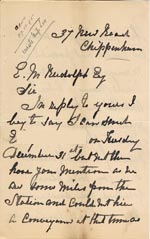 37 New Road
Chippenham
E. M. Rudolph Esq
Sir
In reply to yours I
beg to say I can send
on Tuesday
December 31st but at the
hour you mention as we
are some miles from the
Station and could not hire
a Conveyance at that time as